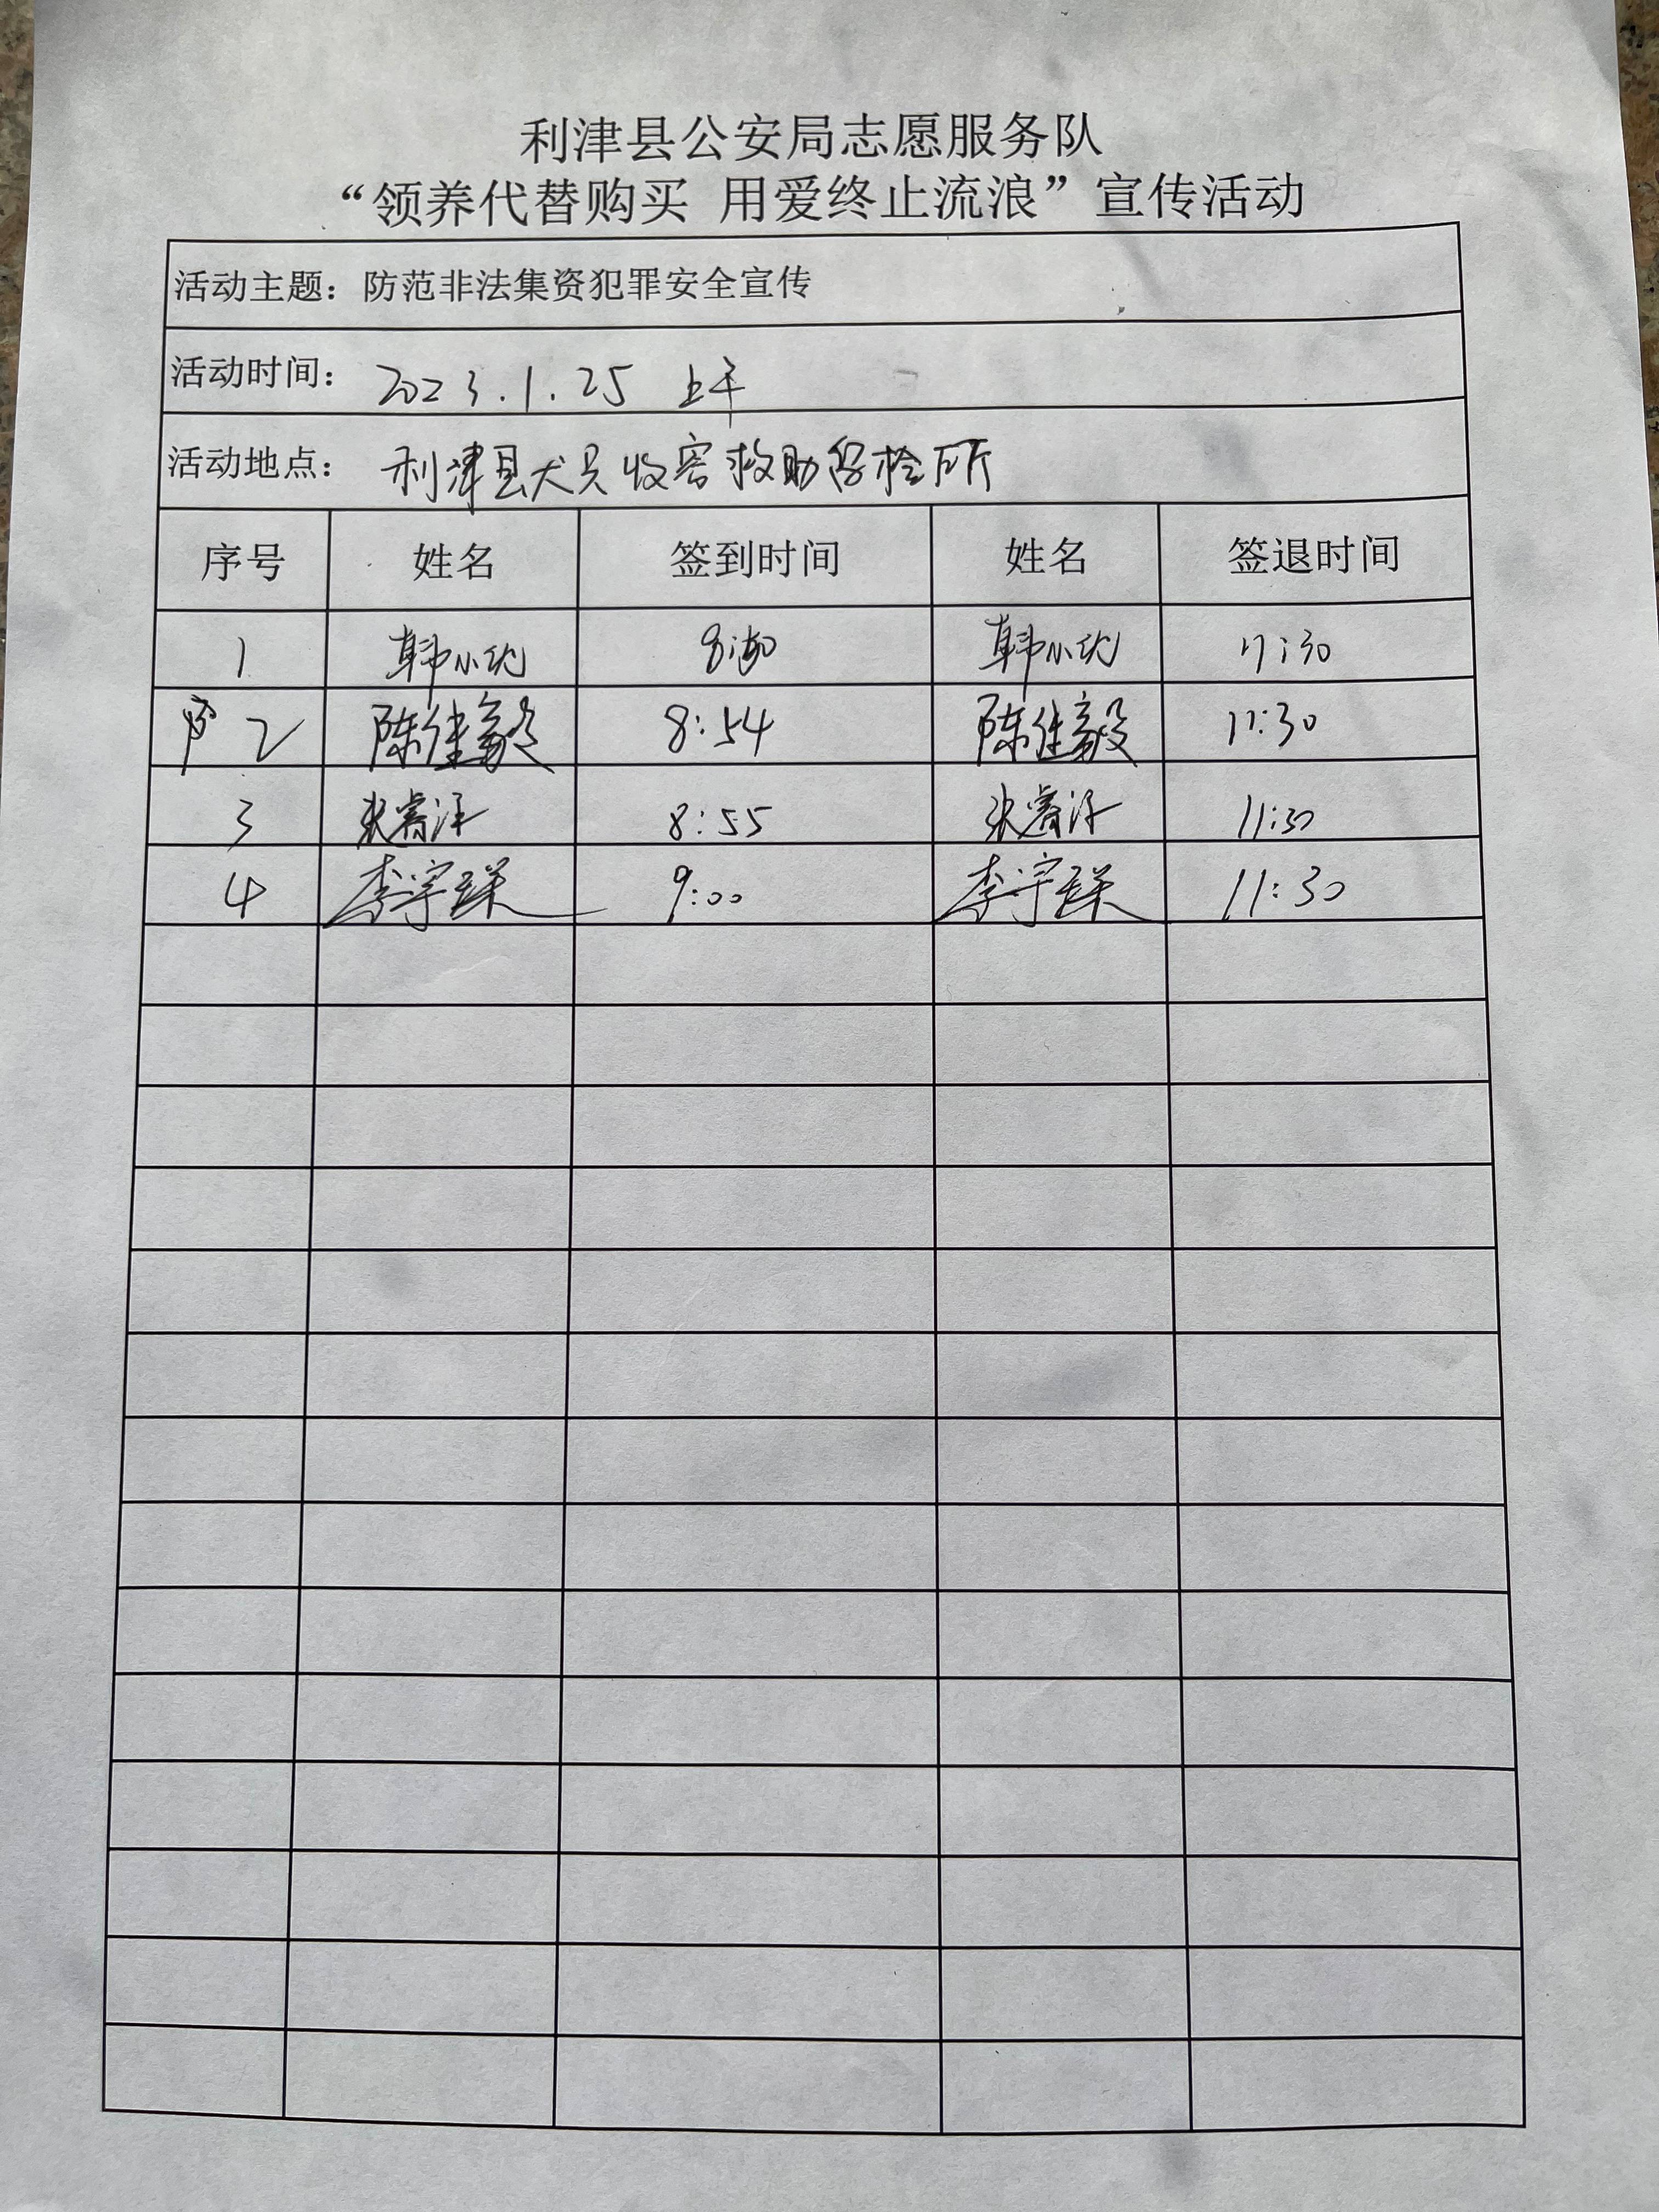 利津县公安局志愿服务队
“领养代替购买 用爱终止流浪”宣传活动
活动主题：防范非法集资犯罪安全宣传
活动时间： 2023.1.25 上午
活动地点： 利津县犬只收容救助留检所
序号 姓名 签到时间 姓名 签退时间
1 韩小优 韩小优 11:30
2 陈佳毅 8:54 陈佳毅 11:30
3 张睿洋 8:55 张睿洋 11:30
4 李宇琛 9:00 李宇琛 11:30